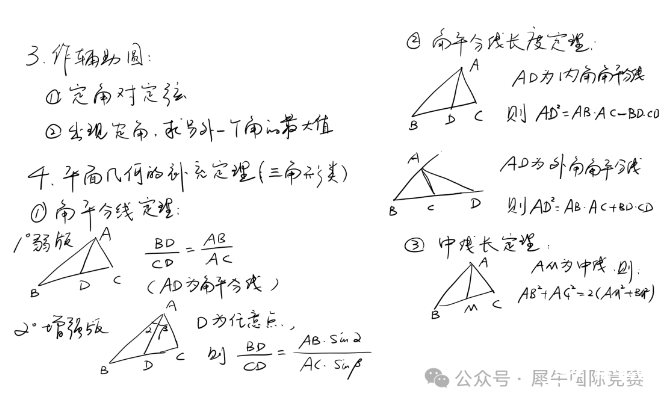 3. 作辅助圆:
① 定角对定弦
② 出现定角，求另外一个角的最大值
4. 平面几何的补充定理(三角形类)
① 角平分线定理:
1° 弱版
A
B
D
C
BD/CD = AB/AC
(AD为角平分线)
2° 增强版
A
α
β
B
D
C
D为任意点,
则 BD/CD = AB·sinα/AC·sinβ
② 角平分线长度定理:
A
B
D
C
AD为内角角平分线
则 AD²=AB·AC-BD·CD
A
B
C
D
AD为外角角平分线
则AD²=AB·AC+BD·CD
③ 中线长定理:
A
B
M
C
AM为中线.则:
AB²+AC²=2(AM²+BM²)
公众号·犀牛国际竞赛